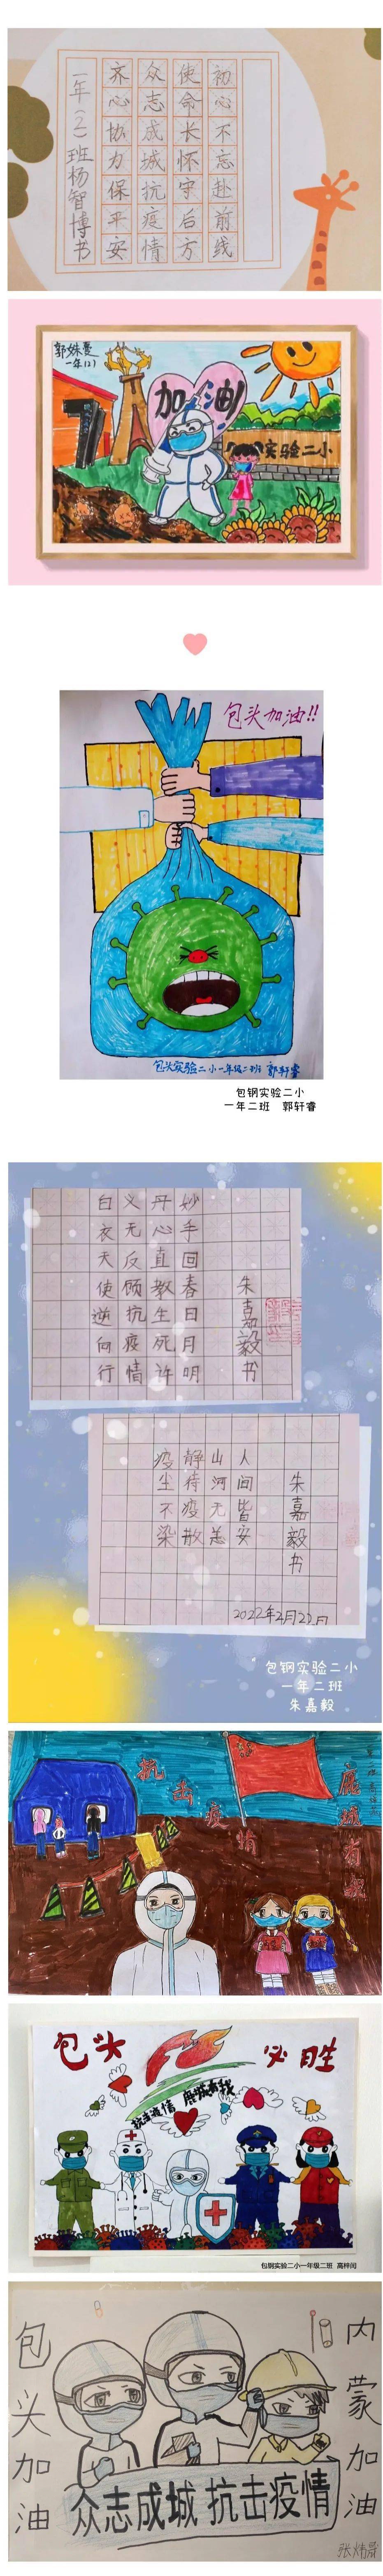 初心不忘赴前线
使命长怀守后方
众志成城抗疫情
齐心协力保平安
一年(2)班杨智博书
郭姝蔓
一年(2)
加油!
实验二小
包头加油!!
包头实验二小一年级二班 郭轩睿
包钢实验二小
一年二班 郭轩睿
朱嘉毅书
妙手回春日月明
丹心直教生死许
义无反顾抗疫情
白衣天使逆向行
朱嘉毅书
人间皆安
山河无恙
静待疫散
疫尘不染
2022年2月22日
包钢实验二小
一年二班
朱嘉毅
抗击疫情
鹿城有我
包头
必胜
抗击疫情 鹿城有我
包钢实验二小一年级二班 高梓闳
包头加油
内蒙加油
众志成城 抗击疫情